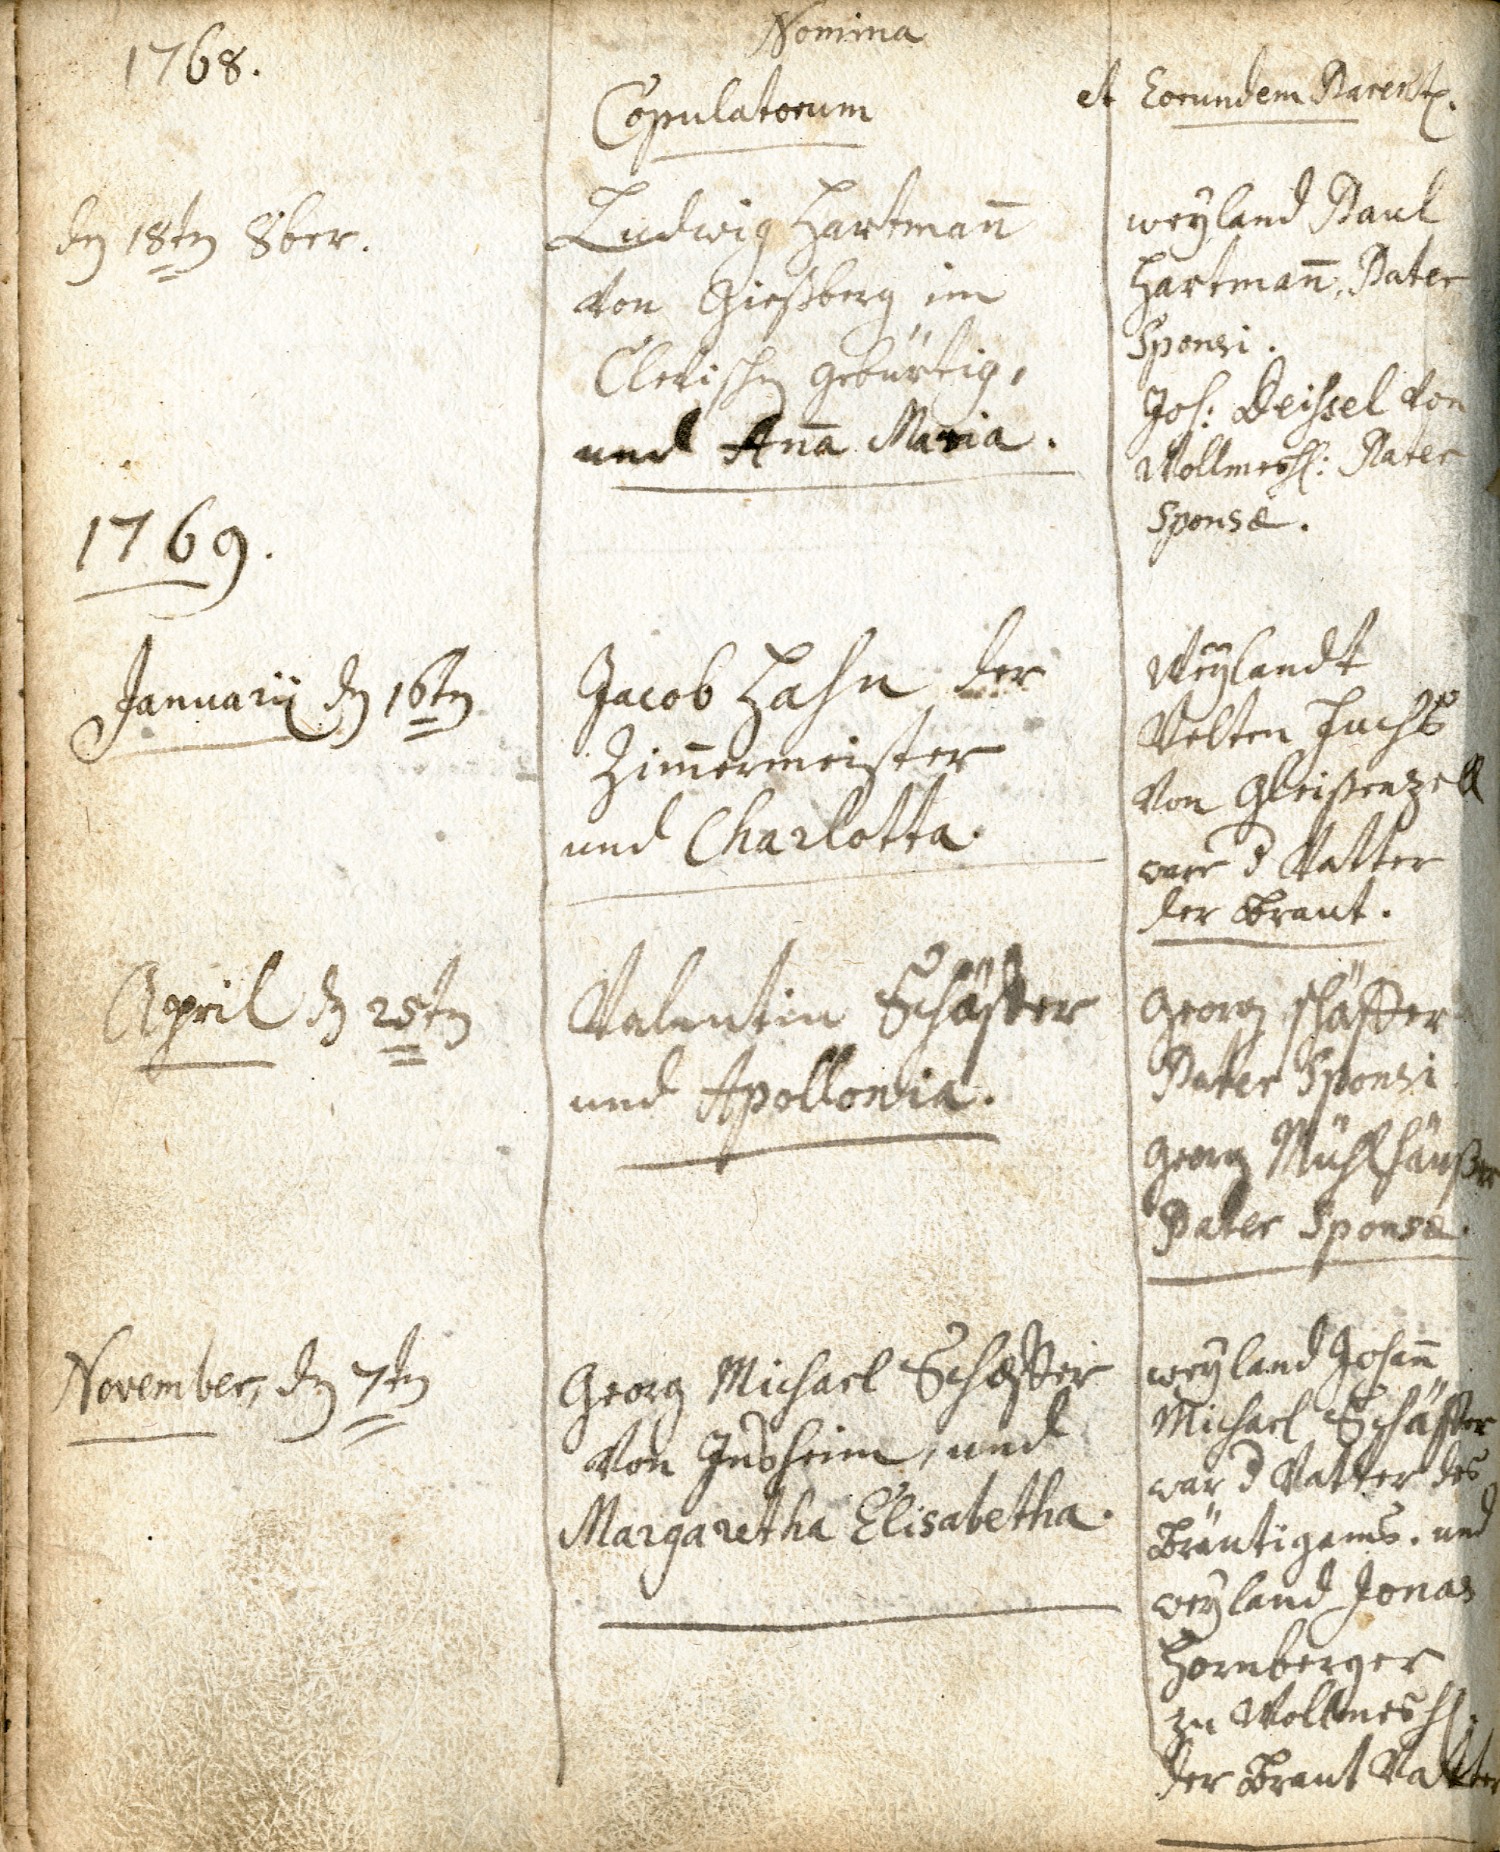 1768.
Nomina
Copulatorum
et Eorundem Parent.
den 18ten 8ber.
Ludwig Hartmañ
von Gießberg im
Clevischen gebürtig,
und Aña Maria.
weyland Paul
Hartmañ, Pater
Sponsi.
Jos: Deissel von
Wollmesh: Pater
Sponsæ.
1769.
Januarij den 16ten
Jacob Hahn der
Zim̄ermeister
und Charlotta.
Weylandt
Velten Fuchs
von Gleißenzell
war d Vatter
der Braut.
April den 25ten
Valentin Schäffer
und Apollonia.
Georg Schäffer
Pater Sponsi
Georg Mühlhäußer
Pater Sponsæ.
November, den 7ten
Georg Michael Schæffer
von Insheim, und
Margaretha Elisabetha.
weyland Johañ
Michael Schäffer
war d Vatter des
Bräutigams. und
weyland Jonas
Hornberger
zu Wollmesh.
der Braut Vatter